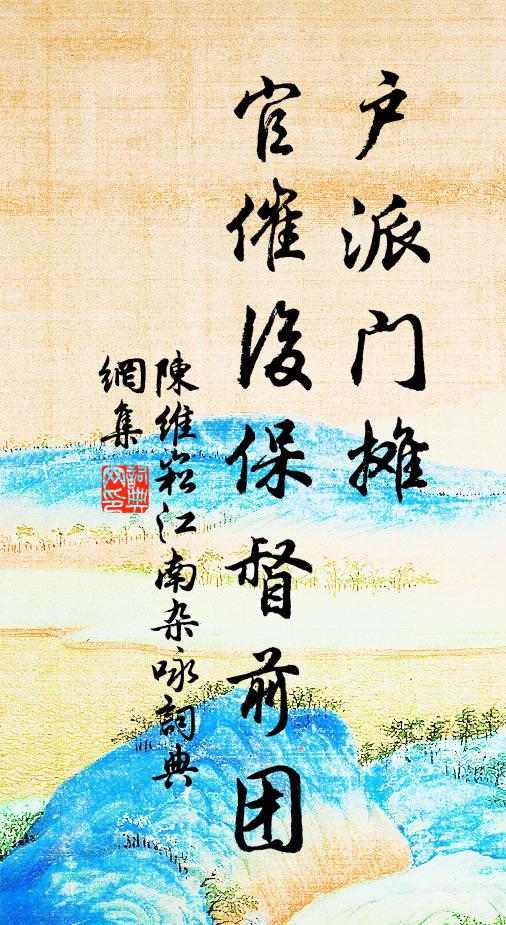 户派门摊
官催後保督前团
陳维崧江南杂咏詞典
網集